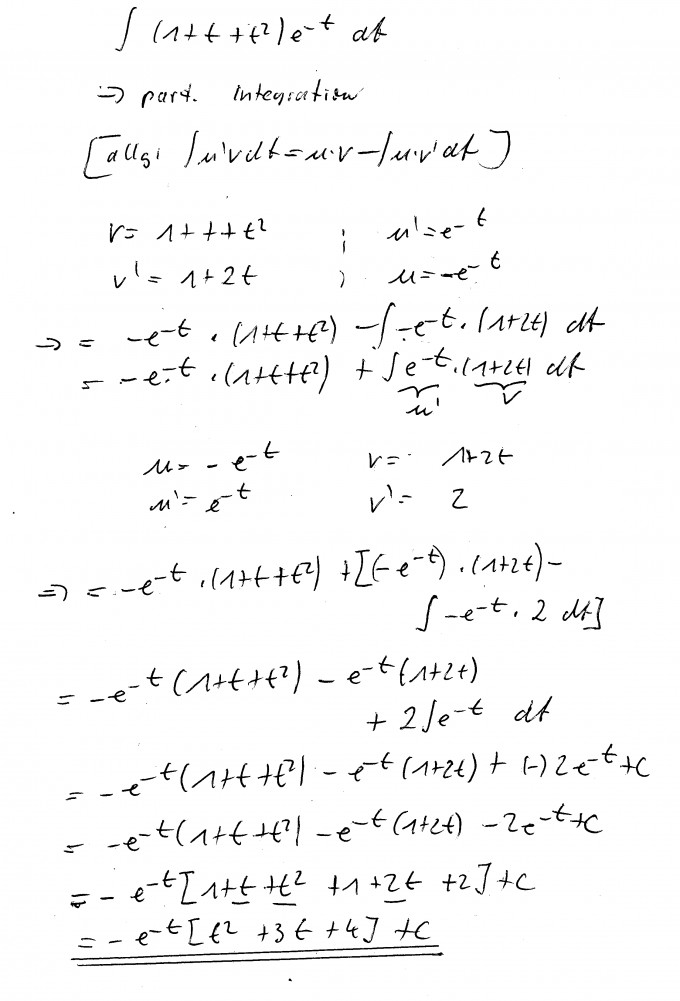 ∫ (1+t+t²)e^-t dt
=> part. Integration
[allg: ∫u'vdt=u·v-∫u·v'dt]
v= 1+t+t² ; u'=e^-t
v'= 1+2t ; u=-e^-t
=> = -e^-t · (1+t+t²) -∫-e^-t·(1+2t) dt
= -e^-t ·(1+t+t²) + ∫e^-t·(1+2t) dt
u' v
u= -e^-t v= 1+2t
u'= e^-t v'= 2
=> = -e^-t ·(1+t+t²) +[(-e^-t)·(1+2t)-
∫-e^-t· 2 dt]
= -e^-t (1+t+t²) - e^-t(1+2t)
+ 2∫e^-t dt
= -e^-t(1+t+t²) - e^-t(1+2t) + (-)2e^-t+C
= -e^-t(1+t+t²) -e^-t(1+2t) -2e^-t+C
= -e^-t[1+t+t² +1+2t +2]+C
= -e^-t[t² +3t+4] +C